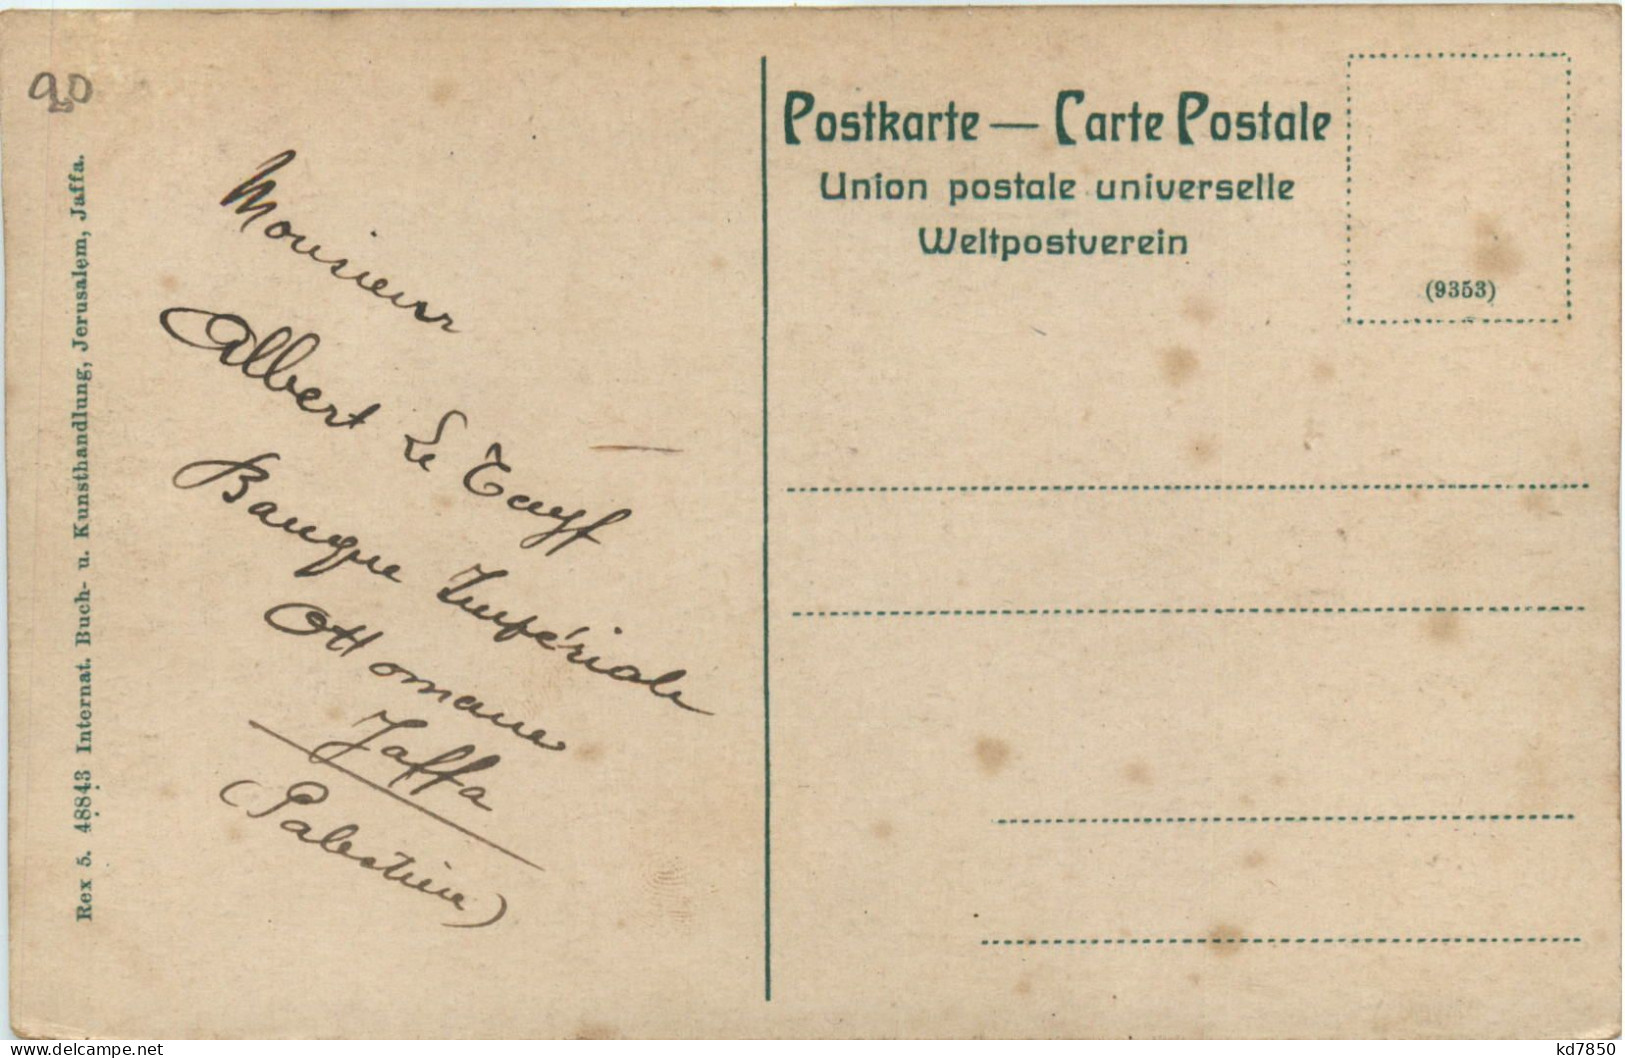 90
Rex 5. 48843 Internat. Buch- u. Kunsthandlung, Jerusalem, Jaffa.
Monsieur
Albert Le Tayf
Banque Impériale
Ottomane
Jaffa
(Palestine)
Postkarte — Carte Postale
Union postale universelle
Weltpostverein
(9353)
delcampe.com
kd7850